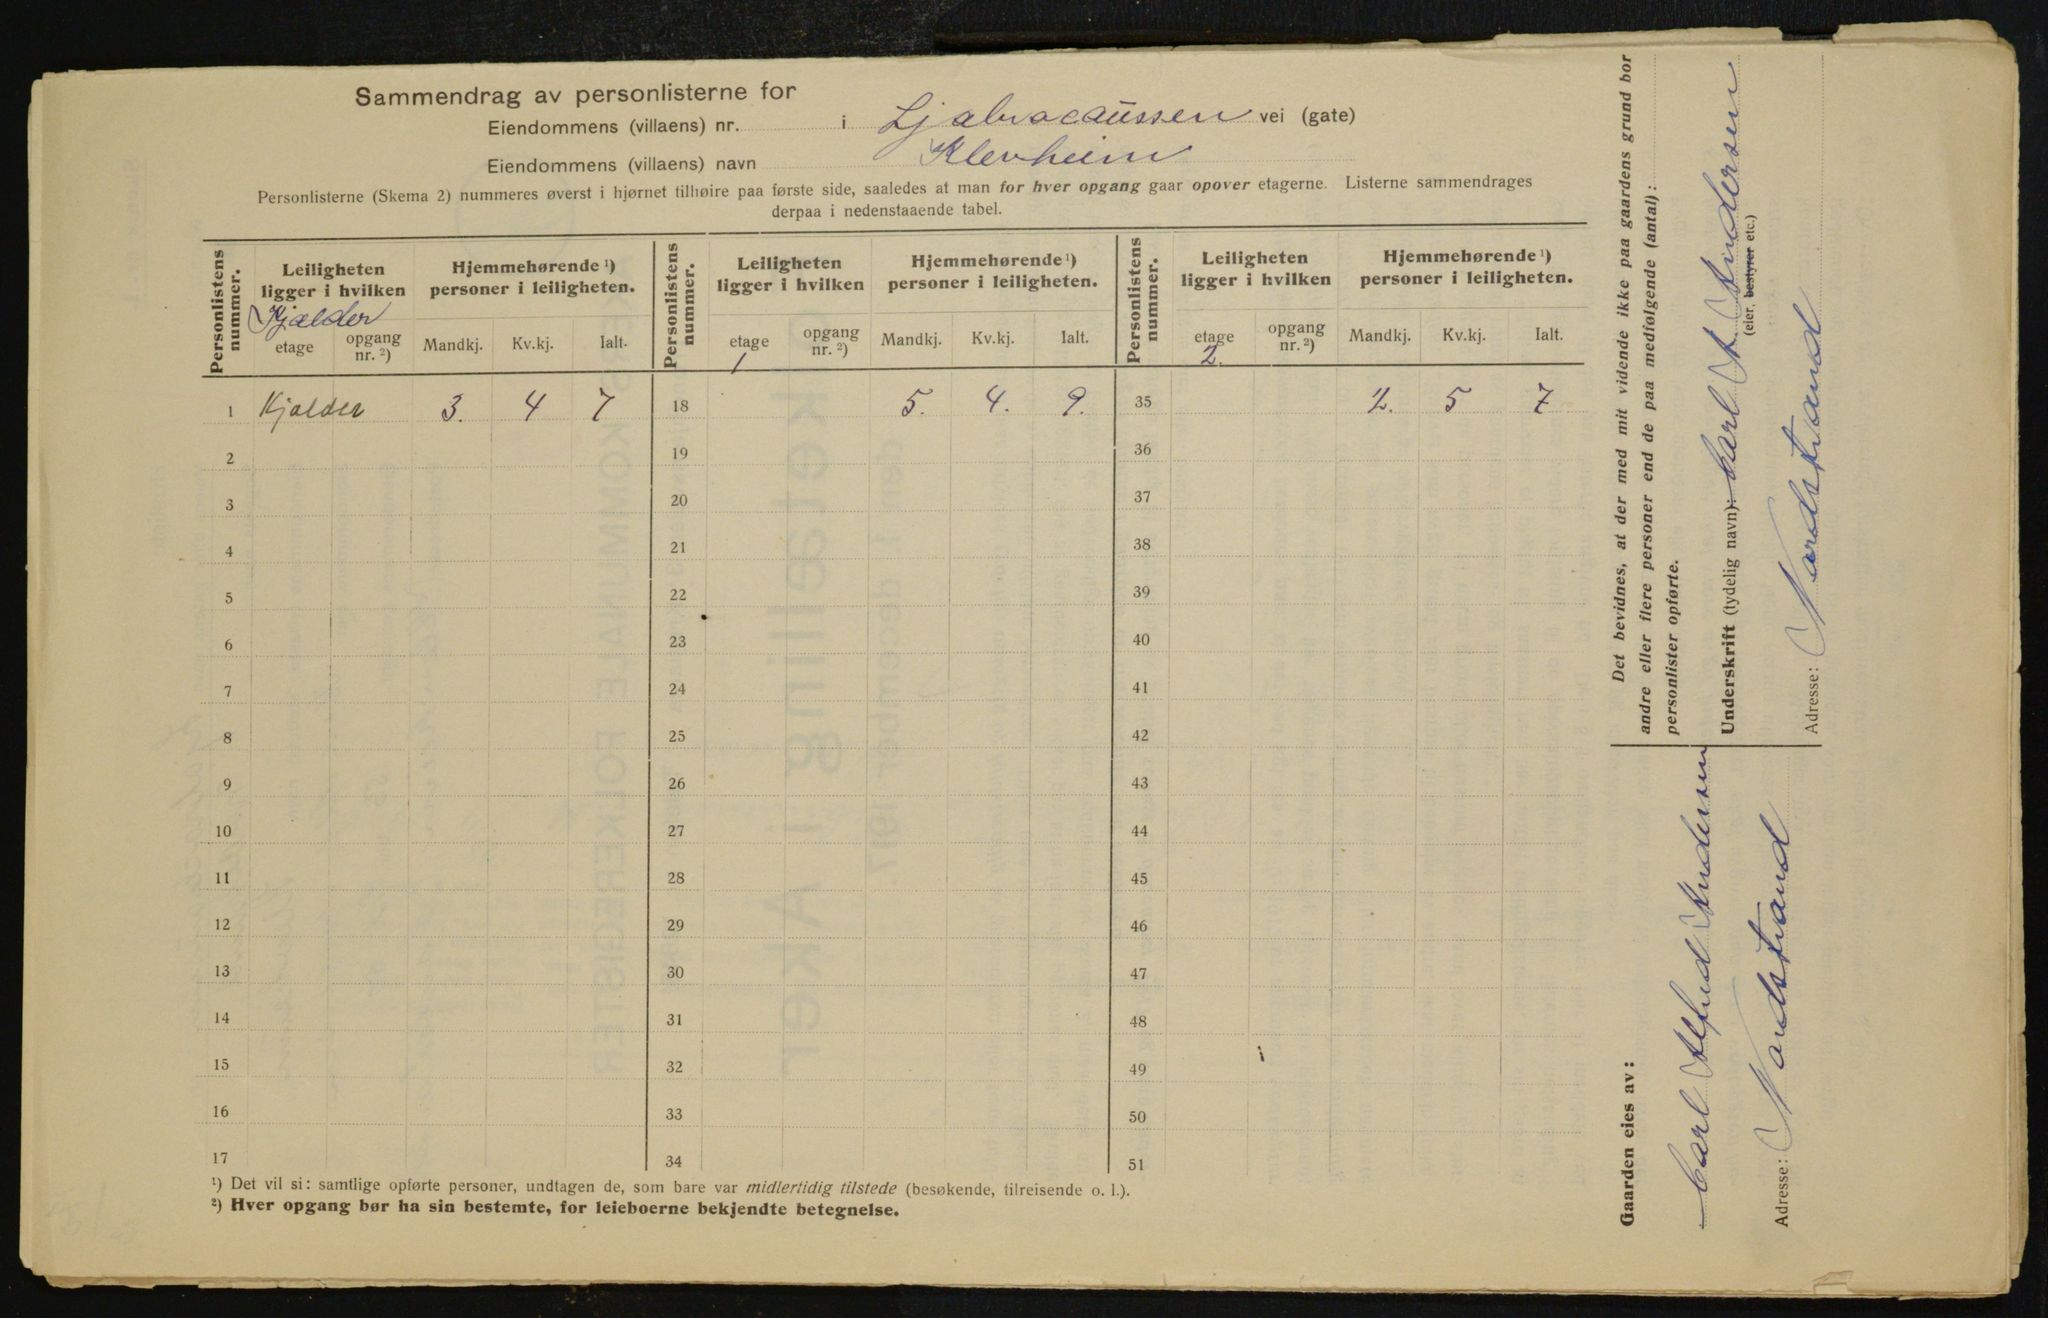 Sammendrag av personlisterne for
Eiendommens (villaens) nr. i Ljabrocaussen vei (gate)
Eiendommens (villaens) navn Klevheim
Personlisterne (Skema 2) nummeres øverst i hjørnet tilhøire paa første side, saaledes at man for hver opgang gaar opover etagerne. Listerne sammendrages
derpaa i nedenstaaende tabel.
Personlistens nummer. Leiligheten ligger i hvilken Hjemmehørende ¹) personer i leiligheten. Personlistens nummer. Leiligheten ligger i hvilken Hjemmehørende ¹) personer i leiligheten. Personlistens nummer. Leiligheten ligger i hvilken Hjemmehørende ¹) personer i leiligheten.
Kjælder
etage opgang nr. ²) Mandkj. Kv.kj. Ialt. etage opgang nr. ²) Mandkj. Kv.kj. Ialt. etage opgang nr. ²) Mandkj. Kv.kj. Ialt.
1 2.
1 Kjælder 3. 4 7 18 5. 4. 9. 35 2. 5 7
2 19 36
3 20 37
4 21 38
5 22 39
6 23 40
7 24 41
8 25 42
9 26 43
10 27 44
11 28 45
12 29 46
13 30 47
14 31 48
15 32 49
16 33 50
17 34 51
¹) Det vil si: samtlige opførte personer, undtagen de, som bare var midlertidig tilstede (besøkende, tilreisende o. l.).
²) Hver opgang bør ha sin bestemte, for leieboerne bekjendte betegnelse.
Det bevidnes, at der med mit vidende ikke paa gaardens grund bor
andre eller flere personer end de paa medfølgende (antal):
personlister opførte.
Underskrift (tydelig navn): Karl A Andersen
(eier, bestyrer etc.)
Adresse: Nordstrand
Gaarden eies av:
Carl Alfred Andersen
Adresse: Nordstrand